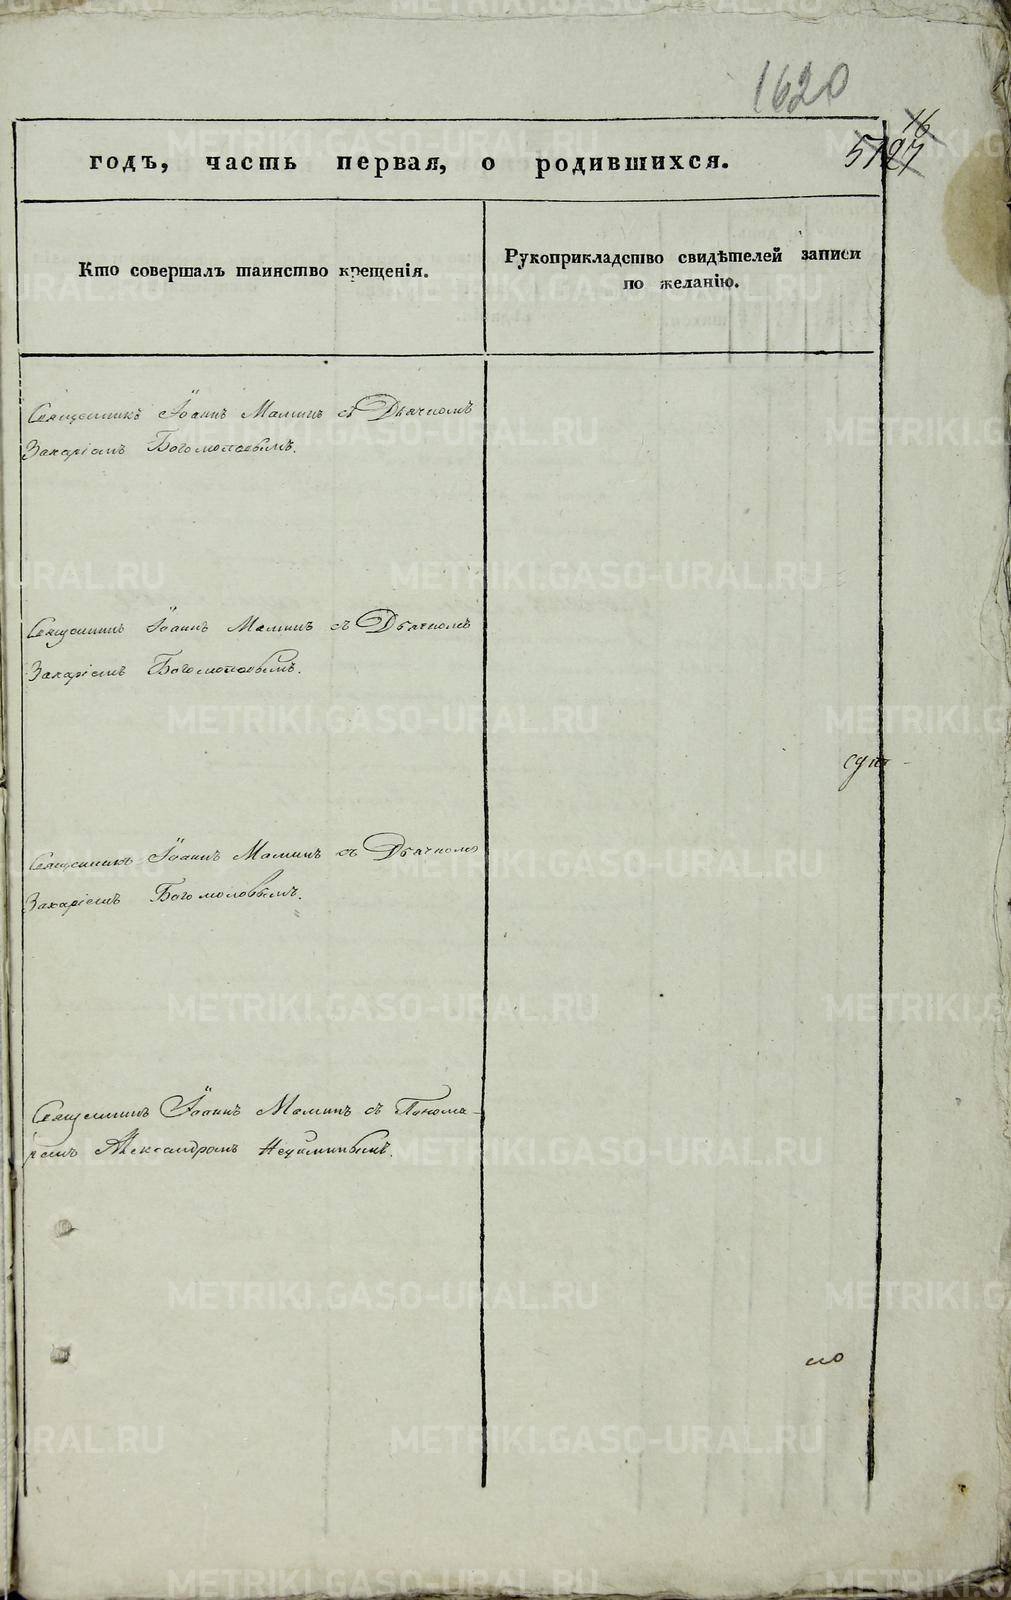 1620
16
5127
годъ, часть первая, о родившихся.
Кто совершалъ таинство крещенія.
Рукоприкладство свидѣтелей записи
по желанію.
Священникъ Іоаннъ Маминъ съ Дьячкомъ
Захаріемъ Богомоловымъ.
Священникъ Іоаннъ Маминъ съ Дьячкомъ
Захаріемъ Богомоловымъ.
Священникъ Іоаннъ Маминъ съ Дьячкомъ
Захаріемъ Богомоловымъ.
Священникъ Іоаннъ Маминъ съ Понома-
ремъ Александромъ
METRIKI.GASO-URAL.RU